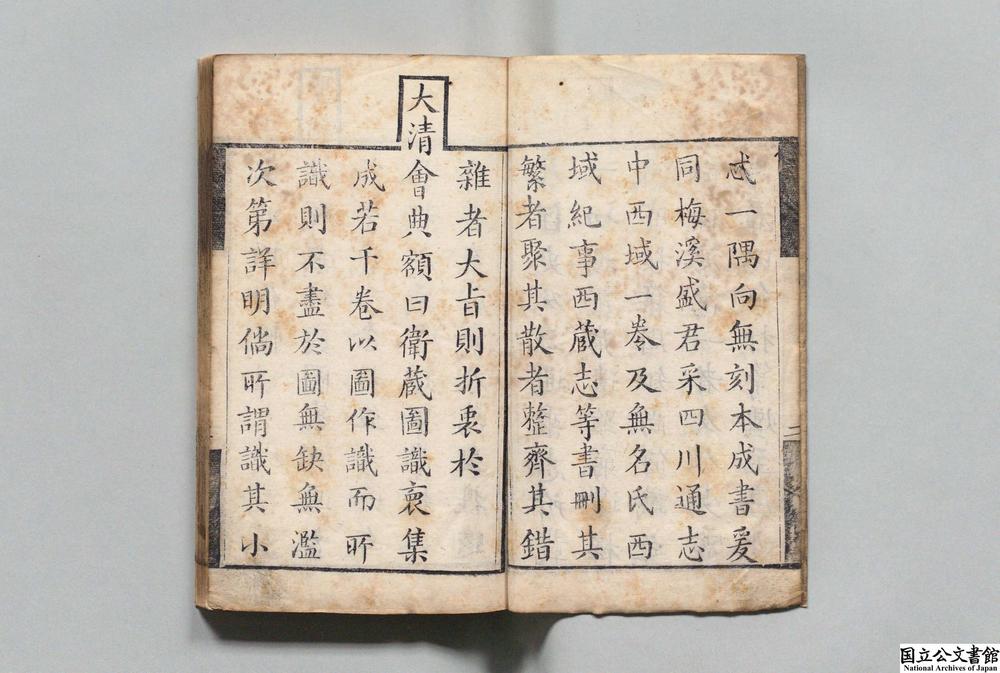 忒一隅向無刻本成書爰
同梅溪盛君采四川通志
中西域一卷及無名氏西
域紀事西蔵志等書刪其
繁者聚其散者整齊其錯
雜者大㫖則折衷於
大清
會典額曰衛蔵圖識裒集
成若干卷以圖作識而所
識則不盡於圖無缺無濫
次第詳明倘所謂識其小
二
国立公文書館
National Archives of Japan